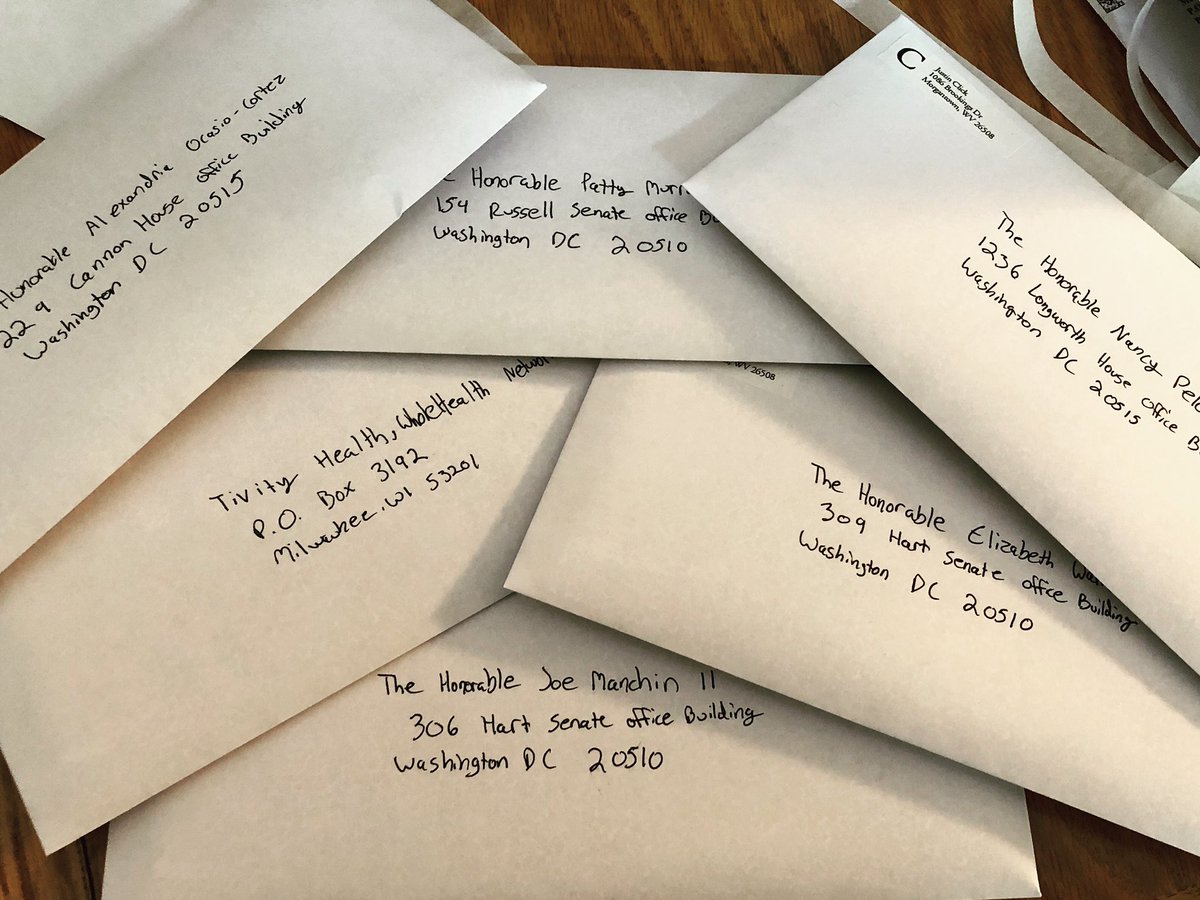 Honorable Alexandria Ocasio-Cortez
229 Cannon House office Building
Washington DC 20515
Honorable Patty
154 Russell Senate office
Washington DC 20510
C
Justin Click
1086 Brookings Dr
Morgantown, WV 26508
The Honorable Nancy
1236 Longworth House office
Washington DC 20515
Tivity Health, WholeHealth
P.O. Box 3192
Milwaukee, WI 53201
WV 26508
The Honorable Elizabeth
309 Hart Senate office Building
Washington DC 20510
The Honorable Joe Manchin II
306 Hart Senate office Building
Washington DC 20510